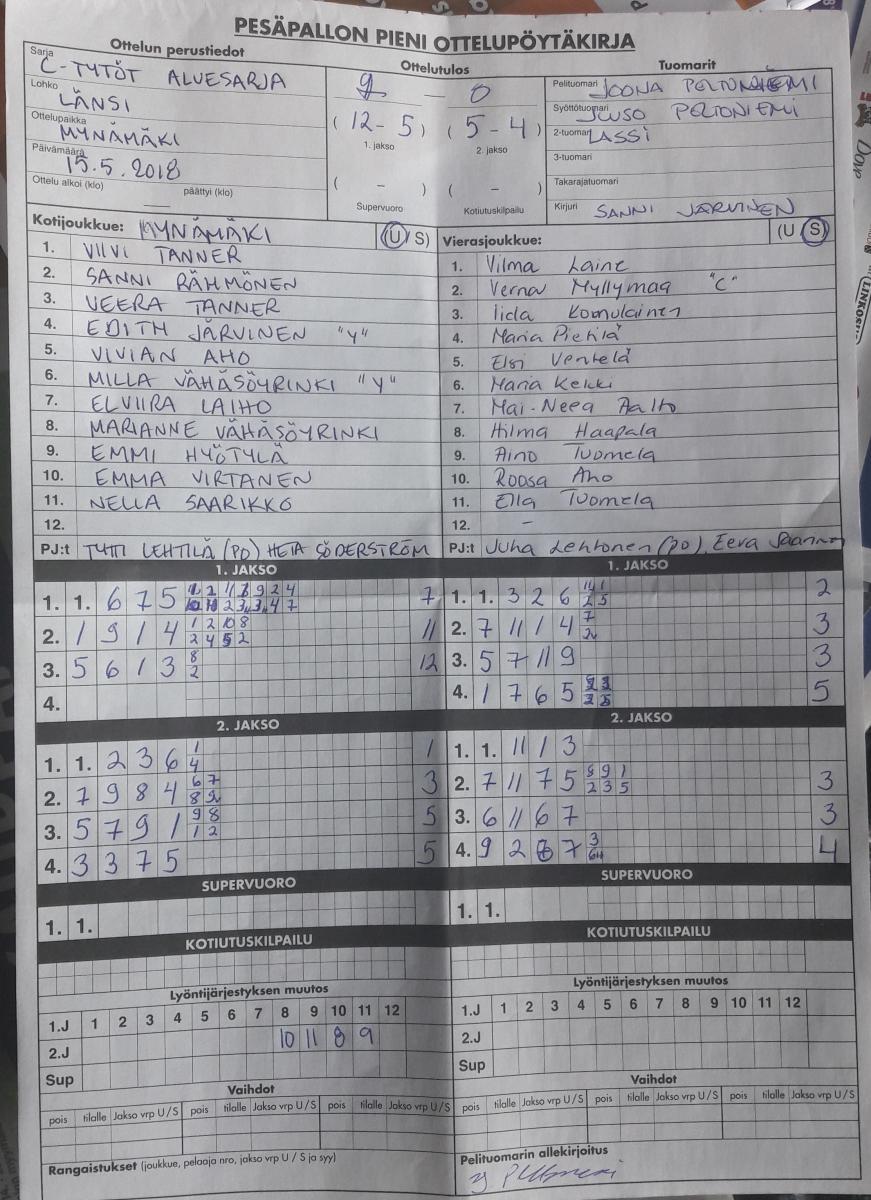 PESÄPALLON PIENI OTTELUPÖYTÄKIRJA
Ottelun perustiedot
Ottelutulos
Tuomarit
Sarja
C-TYTÖT ALUESARJA
Lohko
LÄNSI
Ottelupaikka
MYNÄMÄKI
Päivämäärä
15.5.2018
Ottelu alkoi (klo) päättyi (klo)
— 0
(12-5) (5-4)
1. jakso 2. jakso
( - ) ( - )
Supervuoro Kotiutuskilpailu
Pelituomari JOONA PELTONIEMI
Syöttötuomari JUUSO PELTONIEMI
2-tuomari LASSI
3-tuomari
Takarajatuomari
Kirjuri SANNI JÄRVINEN
Kotijoukkue: MYNÄMÄKI (U/S)
1. VILVI TANNER
2. SANNI RÄHMÖNEN
3. VEERA TANNER
4. EDITH JÄRVINEN "Y"
5. VIVIAN AHO
6. MILLA VÄHÄSÖYRINKI "Y"
7. ELVIIRA LAIHO
8. MARIANNE VÄHÄSÖYRINKI
9. EMMI HYÖTYLÄ
10. EMMA VIRTANEN
11. NELLA SAARIKKO
12.
PJ:t TYTTI LEHTILÄ (PJ) HETA SÖDERSTRÖM
Vierasjoukkue: (U/S)
1. Vilma Laine
2. Verna Myllymaa "C"
3. Iida Komulainen
4. Maria Pietilä
5. Elsi Ventelä
6. Maria Kekki
7. Mai-Neea Aalto
8. Hilma Haapala
9. Aino Tuomela
10. Roosa Aho
11. Ella Tuomela
12. -
PJ:t Juha Lehtonen (PJ), Eeva
1. JAKSO
1. 1. 6 7 5 7
2. 1 9 1 4 1 2 10 8 11
2 4 5 2
3. 5 6 1 3 8 12
2
4.
2. JAKSO
1. 1. 2 3 6 1 1
4
2. 7 9 8 4 6 7 3
8 9
3. 5 7 9 1 9 8 5
1 2
4. 3 3 7 5 5
SUPERVUORO
1. 1.
KOTIUTUSKILPAILU
Lyöntijärjestyksen muutos
1.J 1 2 3 4 5 6 7 8 9 10 11 12
2.J 10 11 8 9
Sup
Vaihdot
pois tilalle Jakso vrp U/S pois tilalle Jakso vrp U/S pois tilalle Jakso vrp U/S
Rangaistukset (joukkue, pelaaja nro, jakso vrp U / S ja syy)
1. JAKSO
1. 1. 3 2 6 11 1 2
2 5
2. 7 11 1 4 7 3
2
3. 5 7 11 9 3
4. 1 7 6 5 5
2. JAKSO
1. 1. 11 1 3
2. 7 11 7 5 8 9 1 3
2 3 5
3. 6 11 6 7 3
4. 9 2 7 3 4
SUPERVUORO
1. 1.
KOTIUTUSKILPAILU
Lyöntijärjestyksen muutos
1.J 1 2 3 4 5 6 7 8 9 10 11 12
2.J
Sup
Vaihdot
pois tilalle Jakso vrp U/S pois tilalle Jakso vrp U/S pois tilalle Jakso vrp U/S
Pelituomarin allekirjoitus